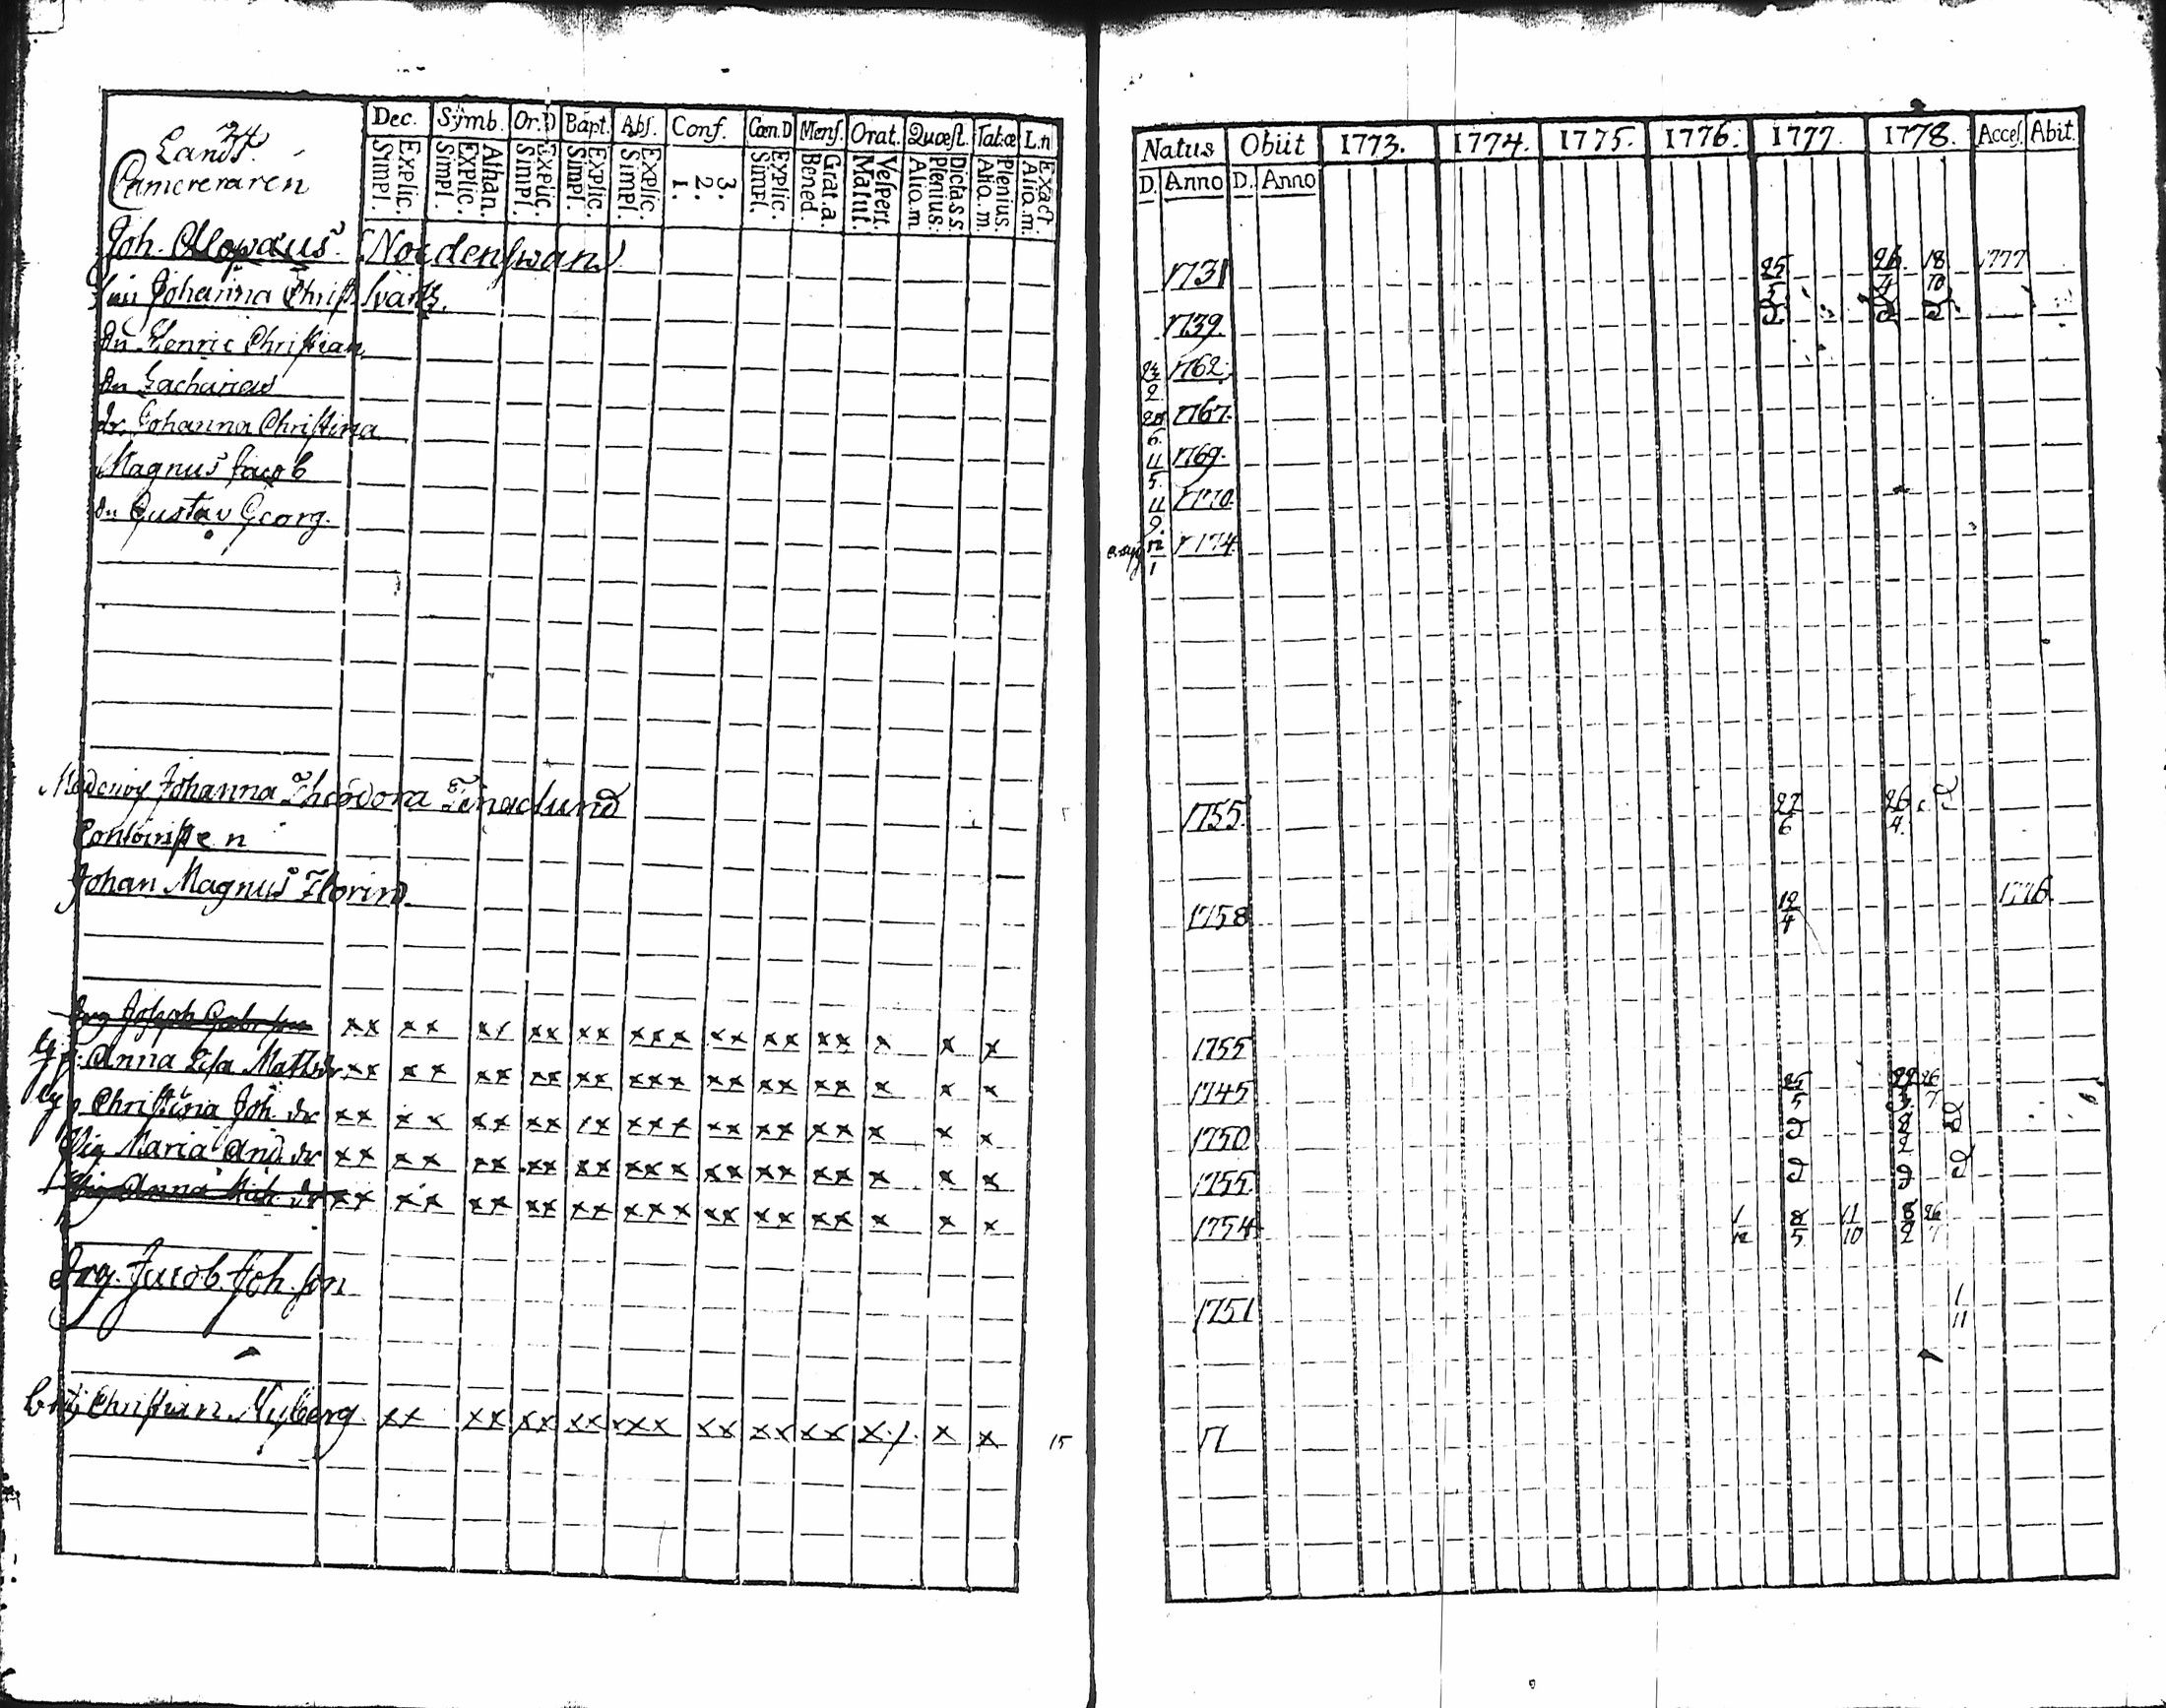 Dec. Symb. Or. D Bapt. Abs. Conf. Cœn. D Mens. Orat. Quæst. Tab:œ L.n
Simpl. Explic. Simpl. Explic. Athan. Simpl. Explic. Simpl. Explic. Simpl. Explic. 1. 2. 3. Simpl. Explic. Bened. Grat. a. Matut. Vespert. Alio. m Plenius. Dicta. s. s Alio. m. Plenius. Alio. m. Exact.
Natus Obiit 1773. 1774. 1775. 1776. 1777. 1778. Acces. Abit.
D. Anno D. Anno
Lands
Camereraren
Joh. Alopæus (Nordenswan) 1731 25/5 26/4 18/10 1777
Johanna Christ. Svartz. 1739.
Henric Christian 1762.
Zacharias 1767.
dr. Johanna Christina 11/5. 1769.
Magnus Jacob 11/9. 1770.
Gustav Georg. 12/1 1774.
Johanna Theodora Tenaclund 1755. 27/6 26/4.
Contoiristen
Johan Magnus Florin 1758 12/4 1776
Drg Joseph xx xx xx xx xx xxx xx xx xx x x x 1755
Anna Lisa Matts dr xx xx xx xx xx xxx xx xx xx x x x 1745 25/5 26/7
Christina Joh. dr xx xx xx xx xx xxx xx xx xx x x x 1750
Pig Maria And. dr xx xx xx xx xx xxx xx xx xx x x x 1755.
Pig Anna Mich. dr xx xx xx xx xx xxx xx xx xx x x x 1754 1/12 8/5 11/10 8/2 26/7
Drg. Jacob Joh. son 1751 1/11
Christian Nyberg xx xx xx xx xxx xx xx xx x x x 15